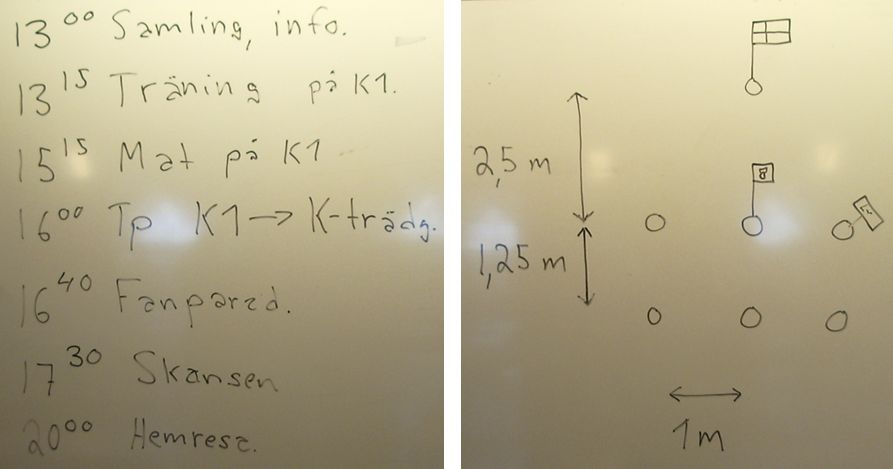 13⁰⁰ Samling, info.
13¹⁵ Träning på K1.
15¹⁵ Mat på K1
16⁰⁰ Tp K1 → K-trädg.
16⁴⁰ Fanparad.
17³⁰ Skansen
20⁰⁰ Hemresa.
2,5 m
1,25 m
1 m